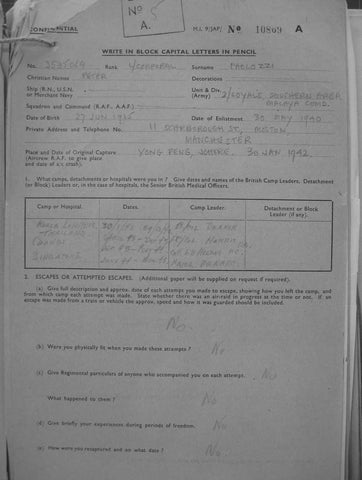 No 5
A.
CONFIDENTIAL
M.I. 9/JAP/ No 10869 A
WRITE IN BLOCK CAPITAL LETTERS IN PENCIL
No. Rank. Surname PAOLOZZI
Christian Names PETER Decorations
Ship (R.N., U.S.N. or Merchant Navy) Unit & Div. (Army) 2/LOYALS SOUTHERN AREA
Squadron and Command (R.A.F., A.A.F.) MALAYA COMD.
Date of Birth 27 JUN Date of Enlistment 30 MAY 1940
Private Address and Telephone No. 11 SCARBOROUGH ST, MOSTON,
MANCHESTER
Place and Date of Original Capture YONG PENG, JOHORE. 30 JAN 1942.
(Aircrew R.A.F. to give place
and date of a/c crash).
1. What camps, detachments or hospitals were you in? Give dates and names of the British Camp Leaders, Detachment
(or Block) Leaders or, in the case of hospitals, the Senior British Medical Officers.
Camp or Hospital. Dates. Camp Leader. Detachment or Block
Leader (if any).
THAILAND
CHANGI
SINGAPORE
2. ESCAPES OR ATTEMPTED ESCAPES. (Additional paper will be supplied on request if required).
(a) Give full description and approx. date of each attempt you made to escape, showing how you left the camp, and
from which camp each attempt was made. State whether there was an air-raid in progress at the time or not. If an
escape was made from a train or vehicle the approx. speed and how it was guarded should be included.
No.
(b) Were you physically fit when you made these attempts? No
(c) Give Regimental particulars of anyone who accompanied you on each attempt. No
What happened to them? No
(d) Give briefly your experiences during periods of freedom. No
(e) How were you recaptured and on what date? No